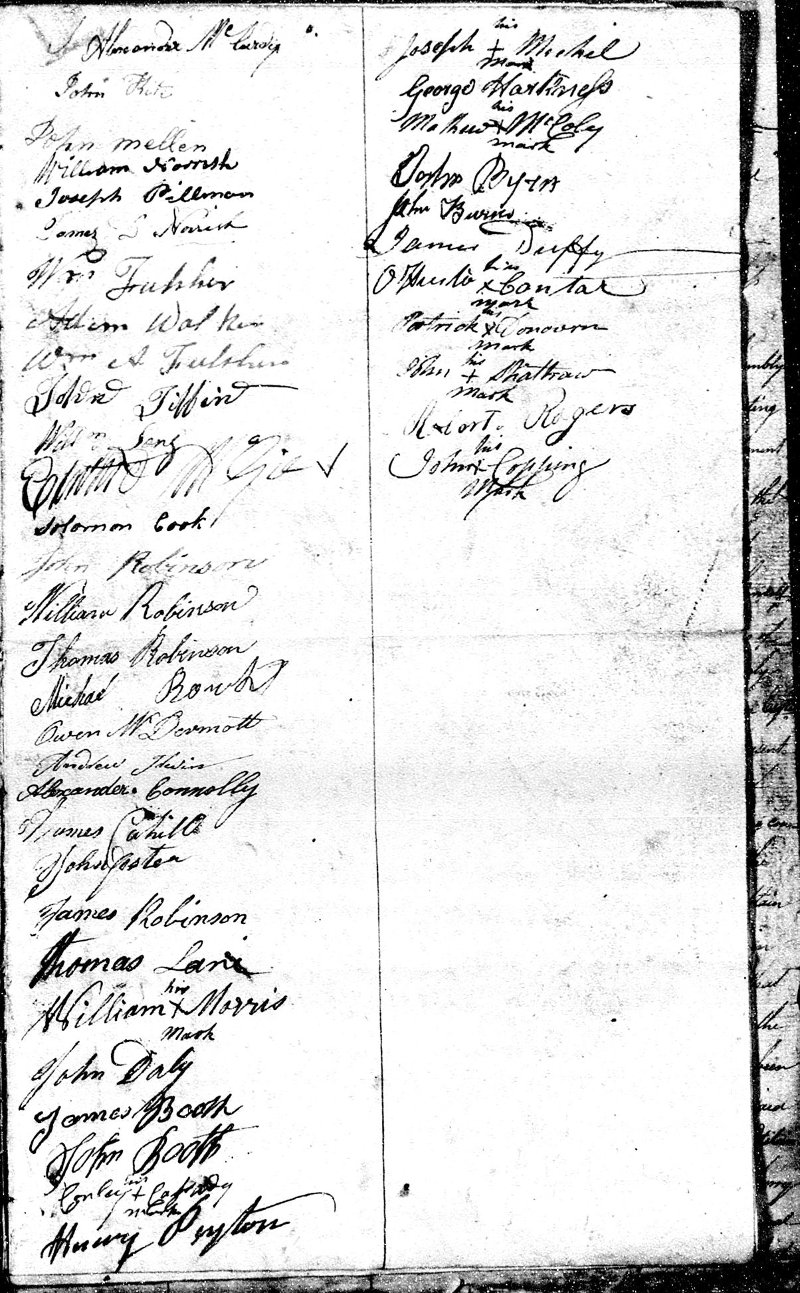 Alexander Mc
John
John mellen
William Norrish
Joseph Pillman
James L Norrish
Wm Fulsher
Adam Walker
Wm A Fulsher
John Tiffin
Solomon Cook
John Robinson
William Robinson
Thomas Robinson
Michael
Owen McDermott
Andrew
Alexander Connolly
James Cahill
John
James Robinson
Thomas Lane
his
William x Morris
mark
John Daly
James Booth
John Booth
his
Conley +
mark
Henry Peyton
his
Joseph + Mechil
mark
George Harkness
his
Mathew x McColy
mark
John Byrn
John Burns
James Duffy
his
x Cantar
mark
his
Patrick x Donovern
mark
his
John +
mark
Robert Rogers
his
John x Copping
Mark